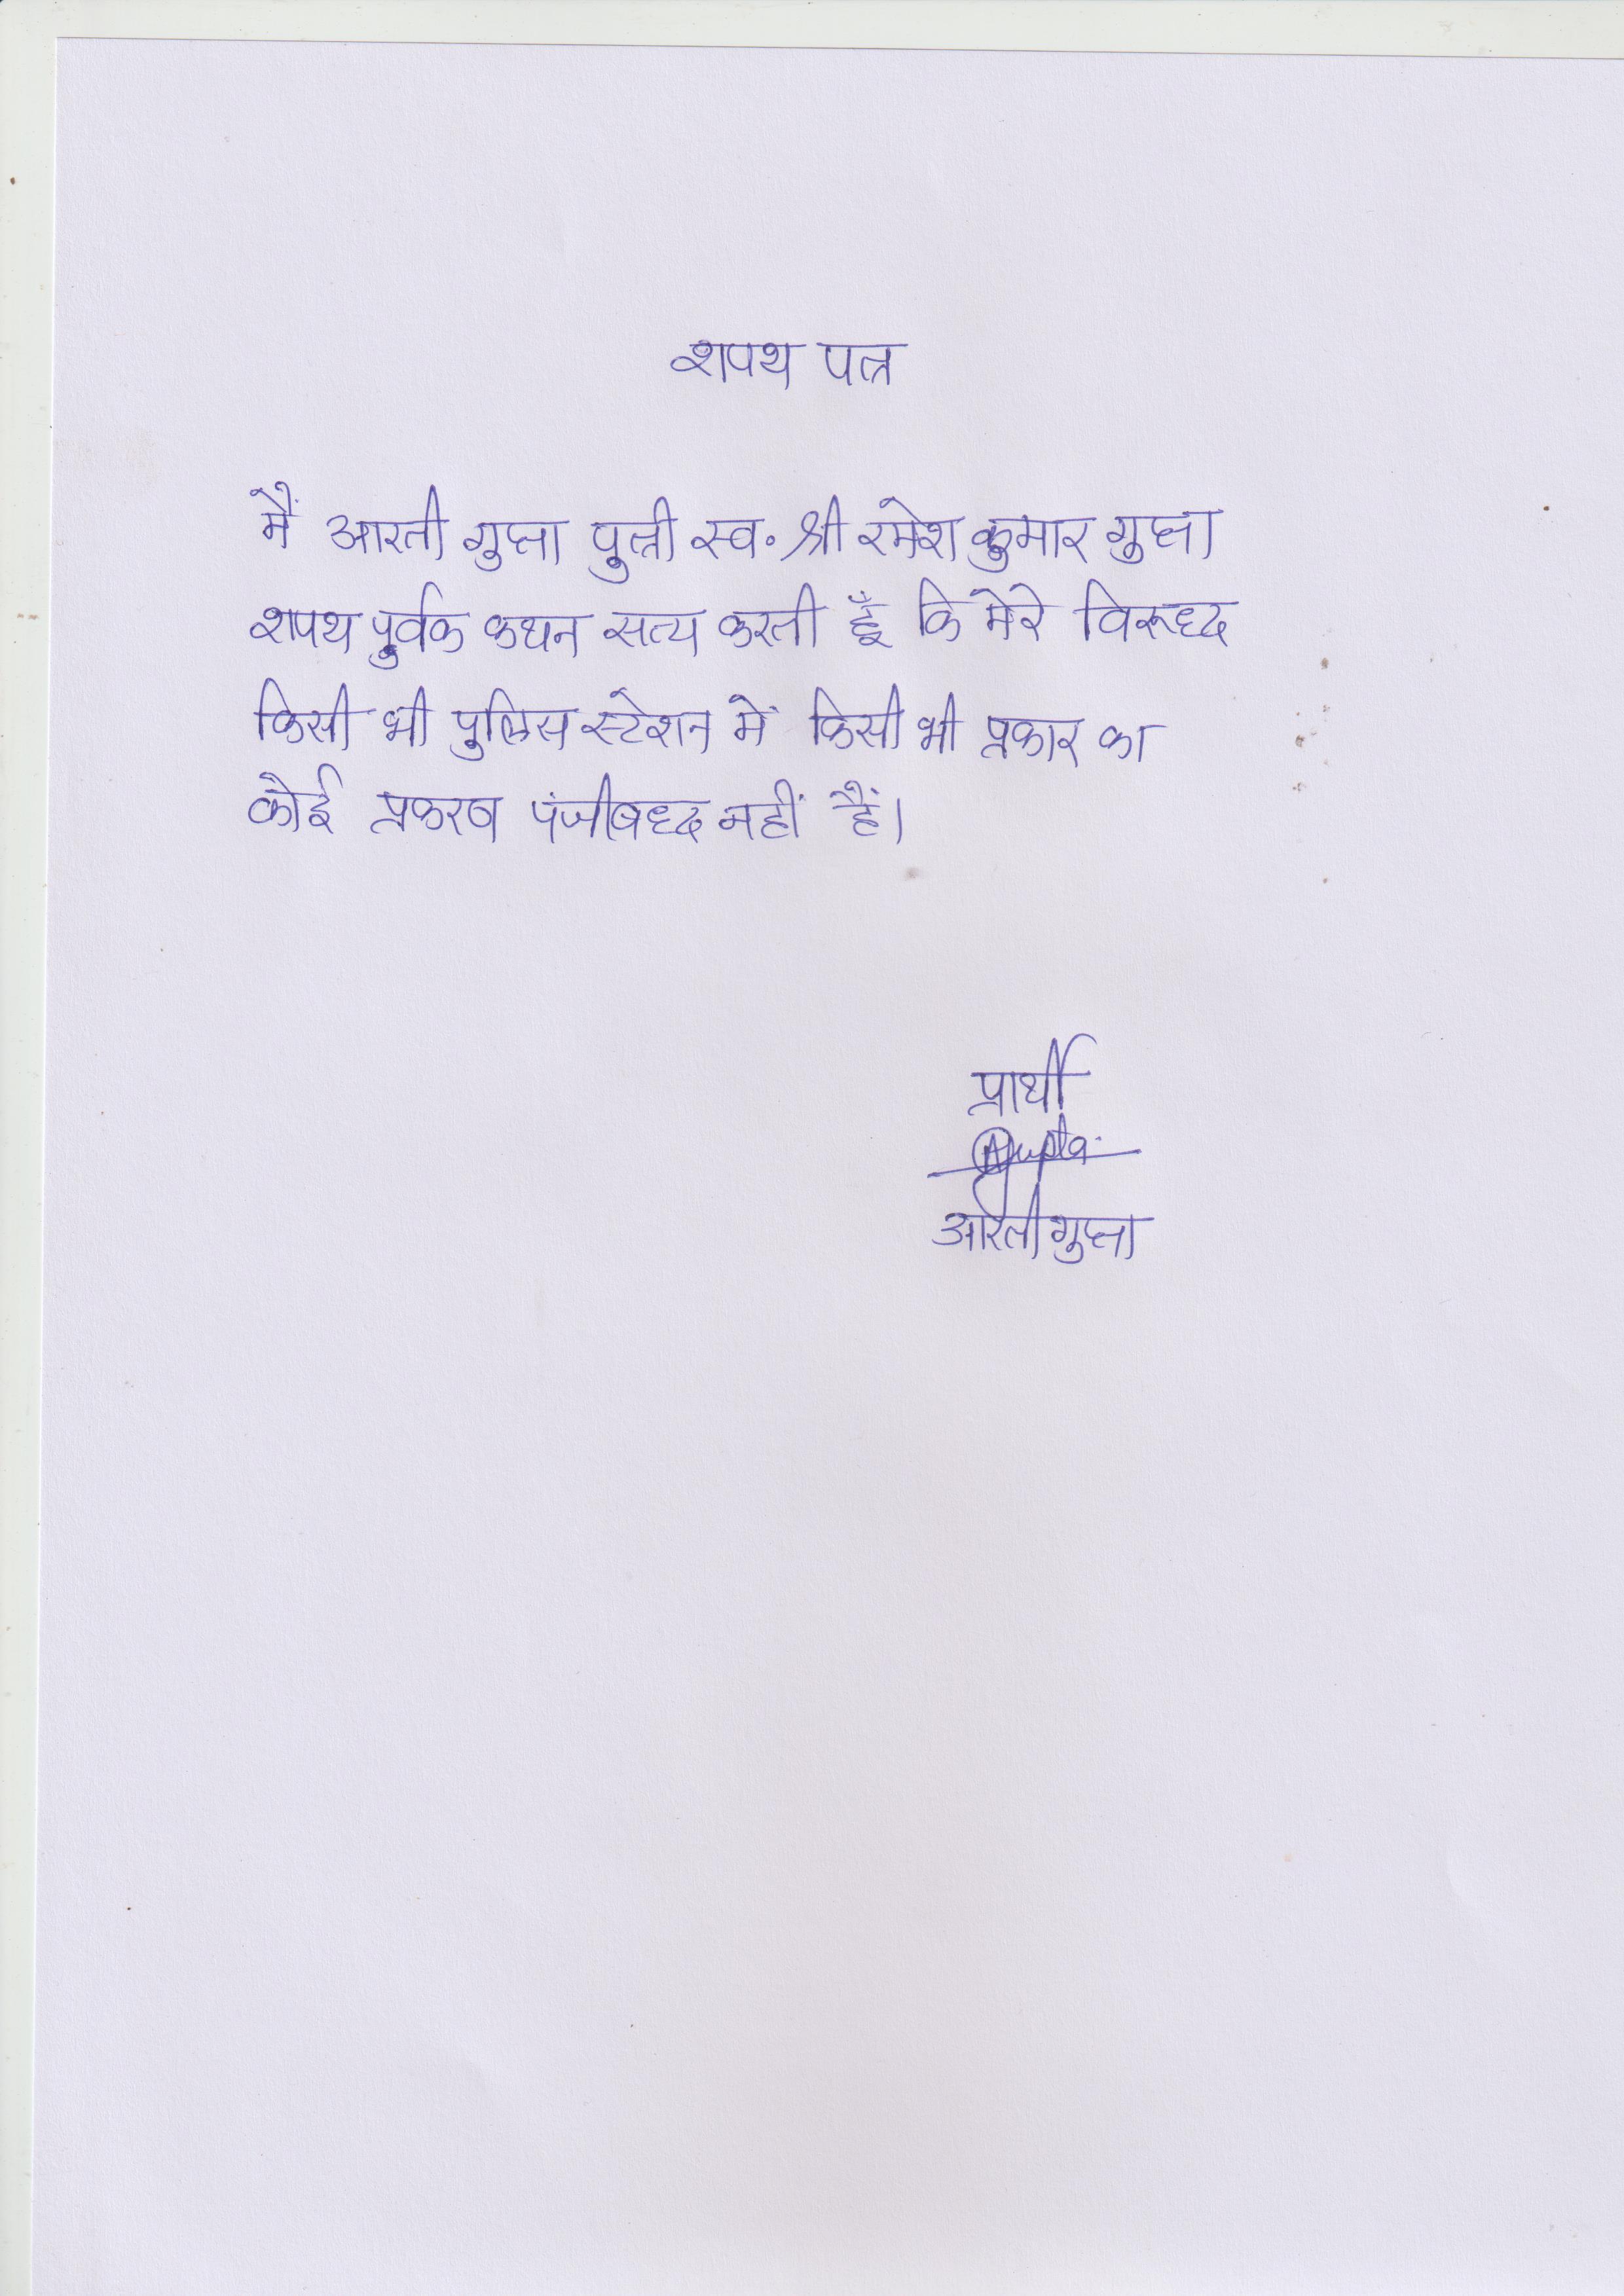 शपथ पत्र
मैं आरती गुप्ता पुत्री स्व. श्री रमेश कुमार गुप्ता
शपथ पुर्वक कथन सत्य करती हूँ कि मेरे विरूध्द
किसी भी पुलिस स्टेशन में किसी भी प्रकार का
कोई प्रकरण पंजीबध्द नहीं हैं।
प्रार्थी
AGupta
आरती गुप्ता